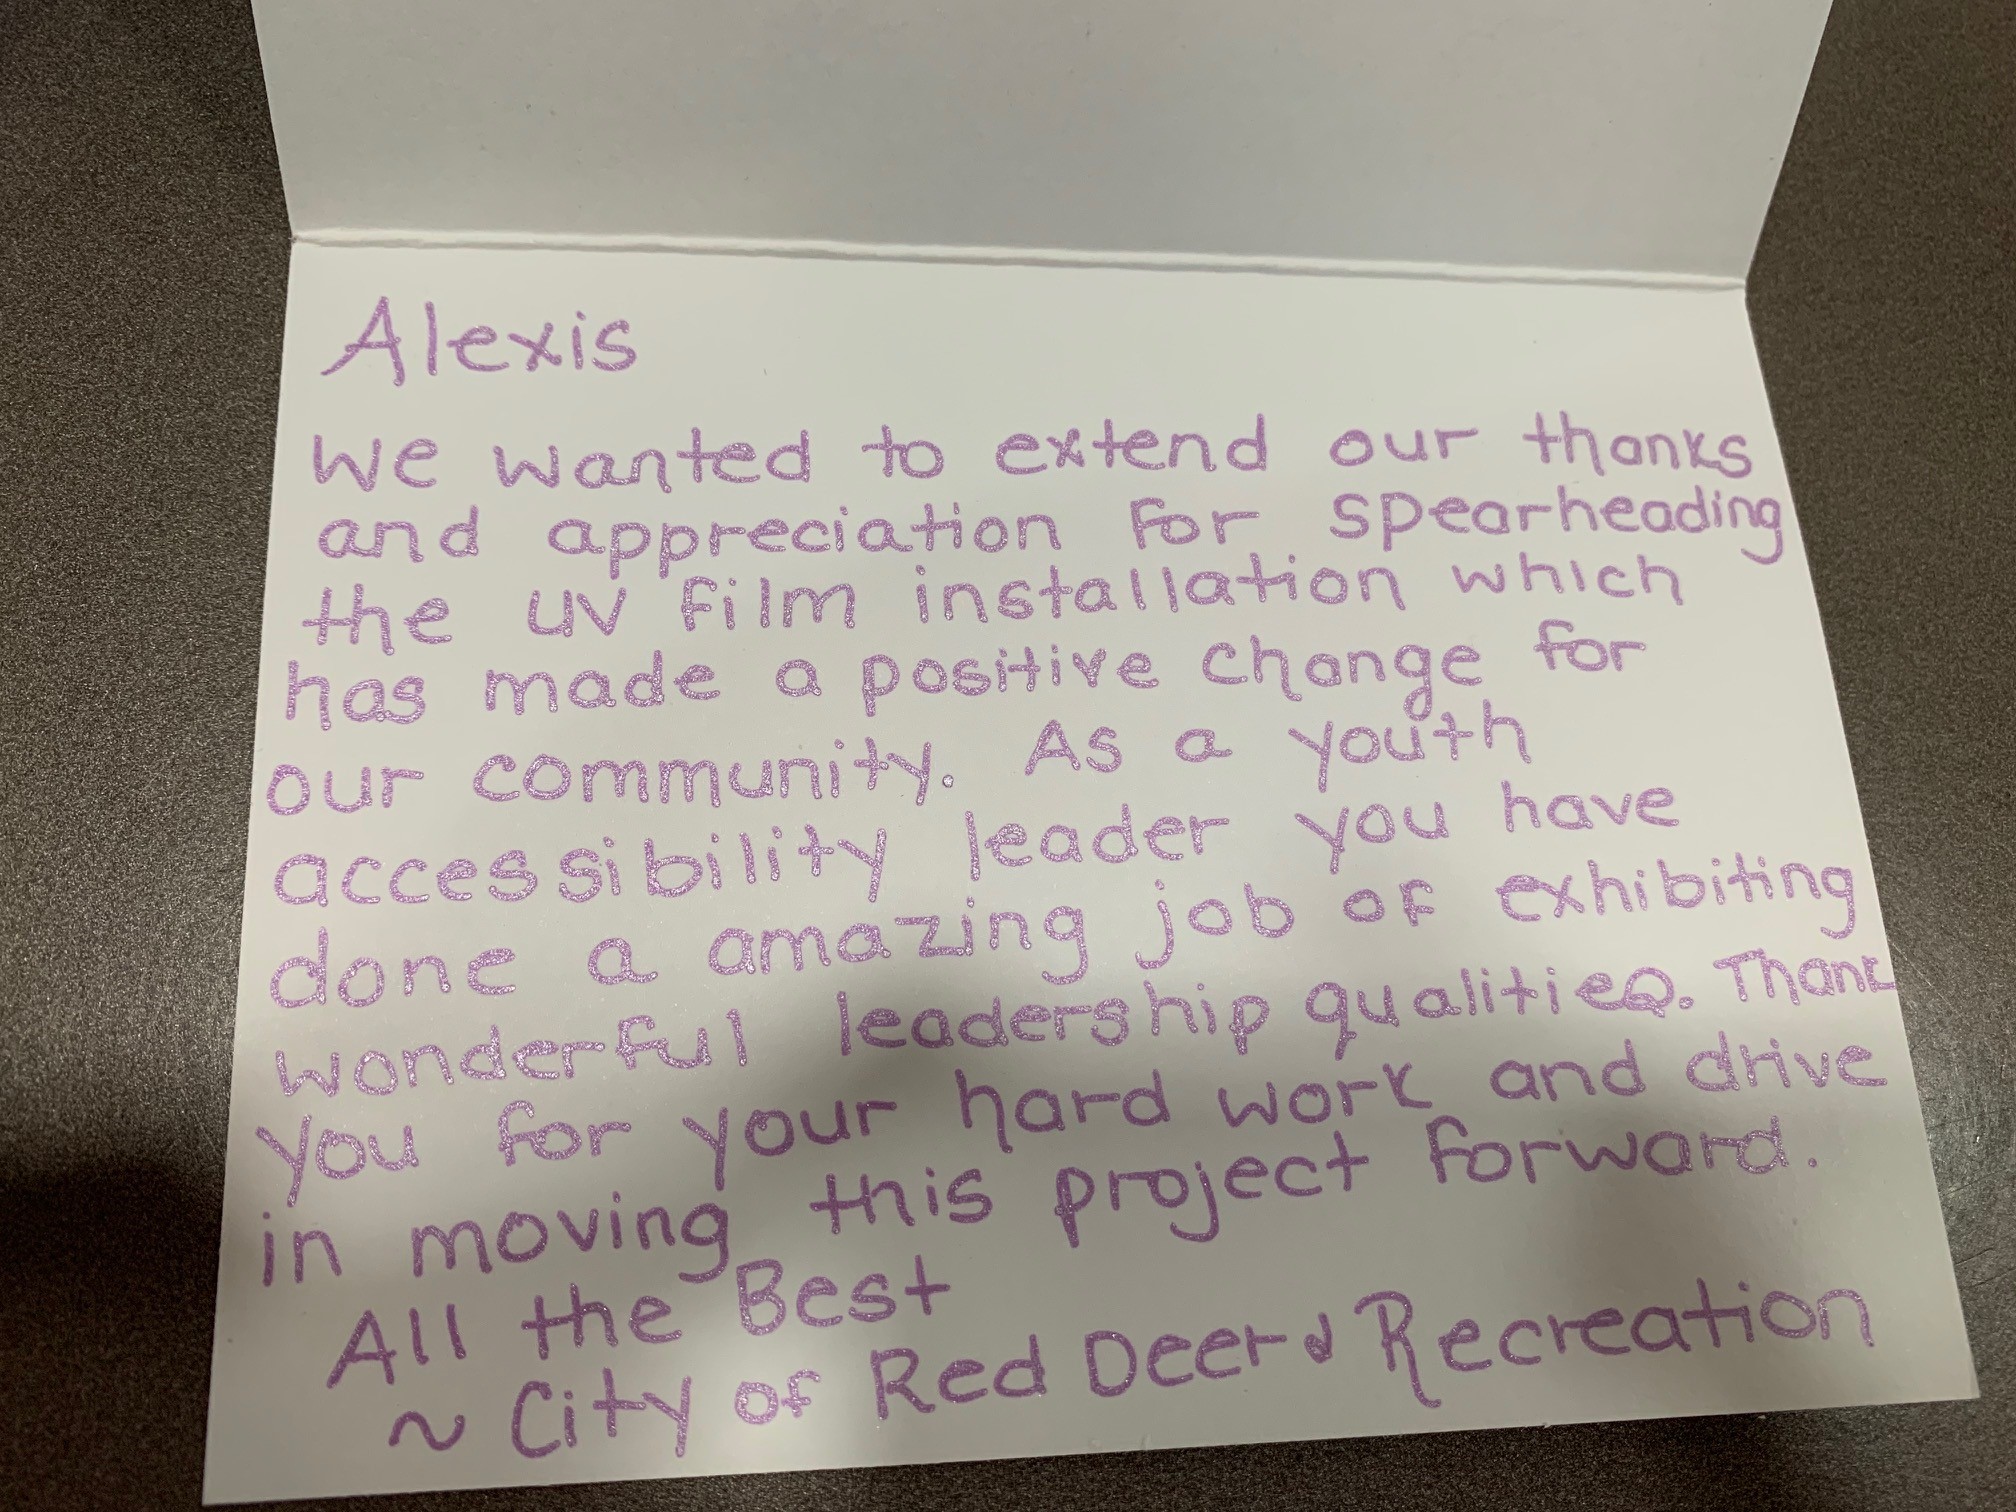 Alexis
We wanted to extend our thanks
and appreciation for spearheading
the UV film installation which
has made a positive change for
our community. As a youth
accessibility leader you have
done a amazing job of exhibiting
wonderful leadership qualities. Thank
you for your hard work and drive
in moving this project forward.
All the Best
~ City of Red Deer & Recreation